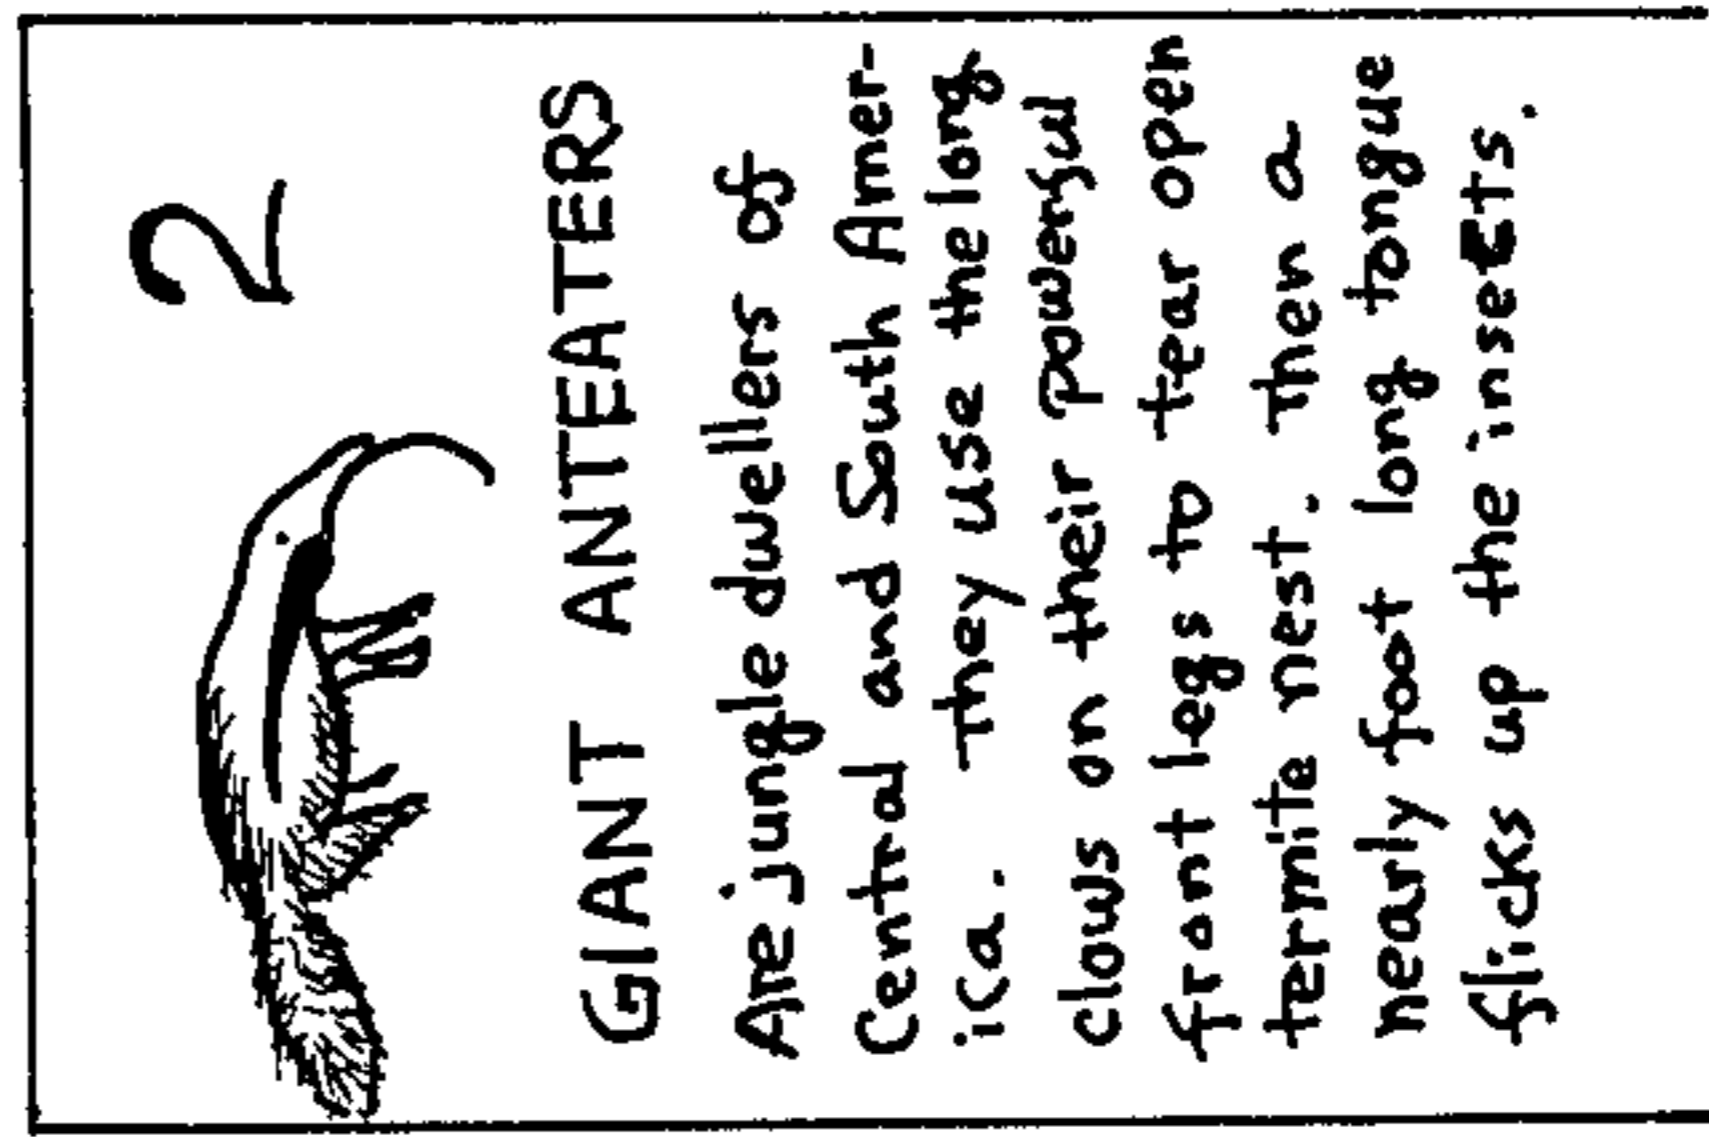 2
GIANT ANTEATERS
Are jungle dwellers of
Central and South Amer-
ica. They use the long
clows on their powerful
front legs to tear open
termite nest. Then a
nearly foot long tongue
flicks up the insEts.